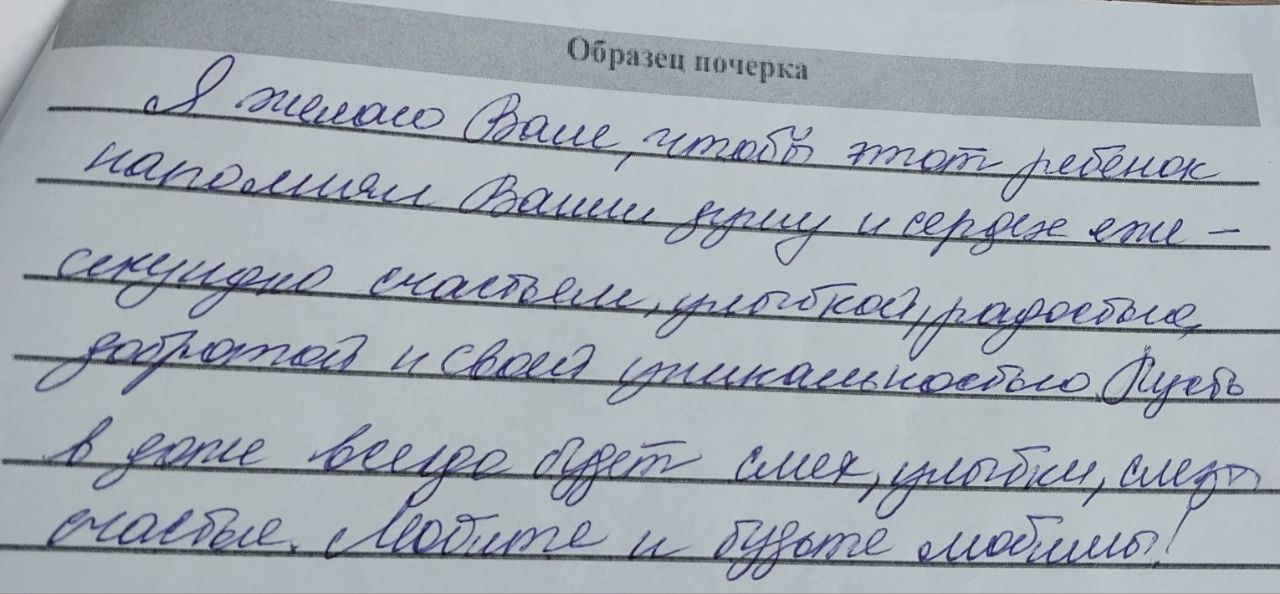 Образец почерка
Я желаю Вам, чтобы этот ребенок
наполнял Ваши душу и сердце еже-
секундно счастьем, улыбкой, радостью,
добротой и своей уникальностью. Пусть
в доме всегда будет смех, улыбки, слезы
счастья. Любите и будьте любимы!